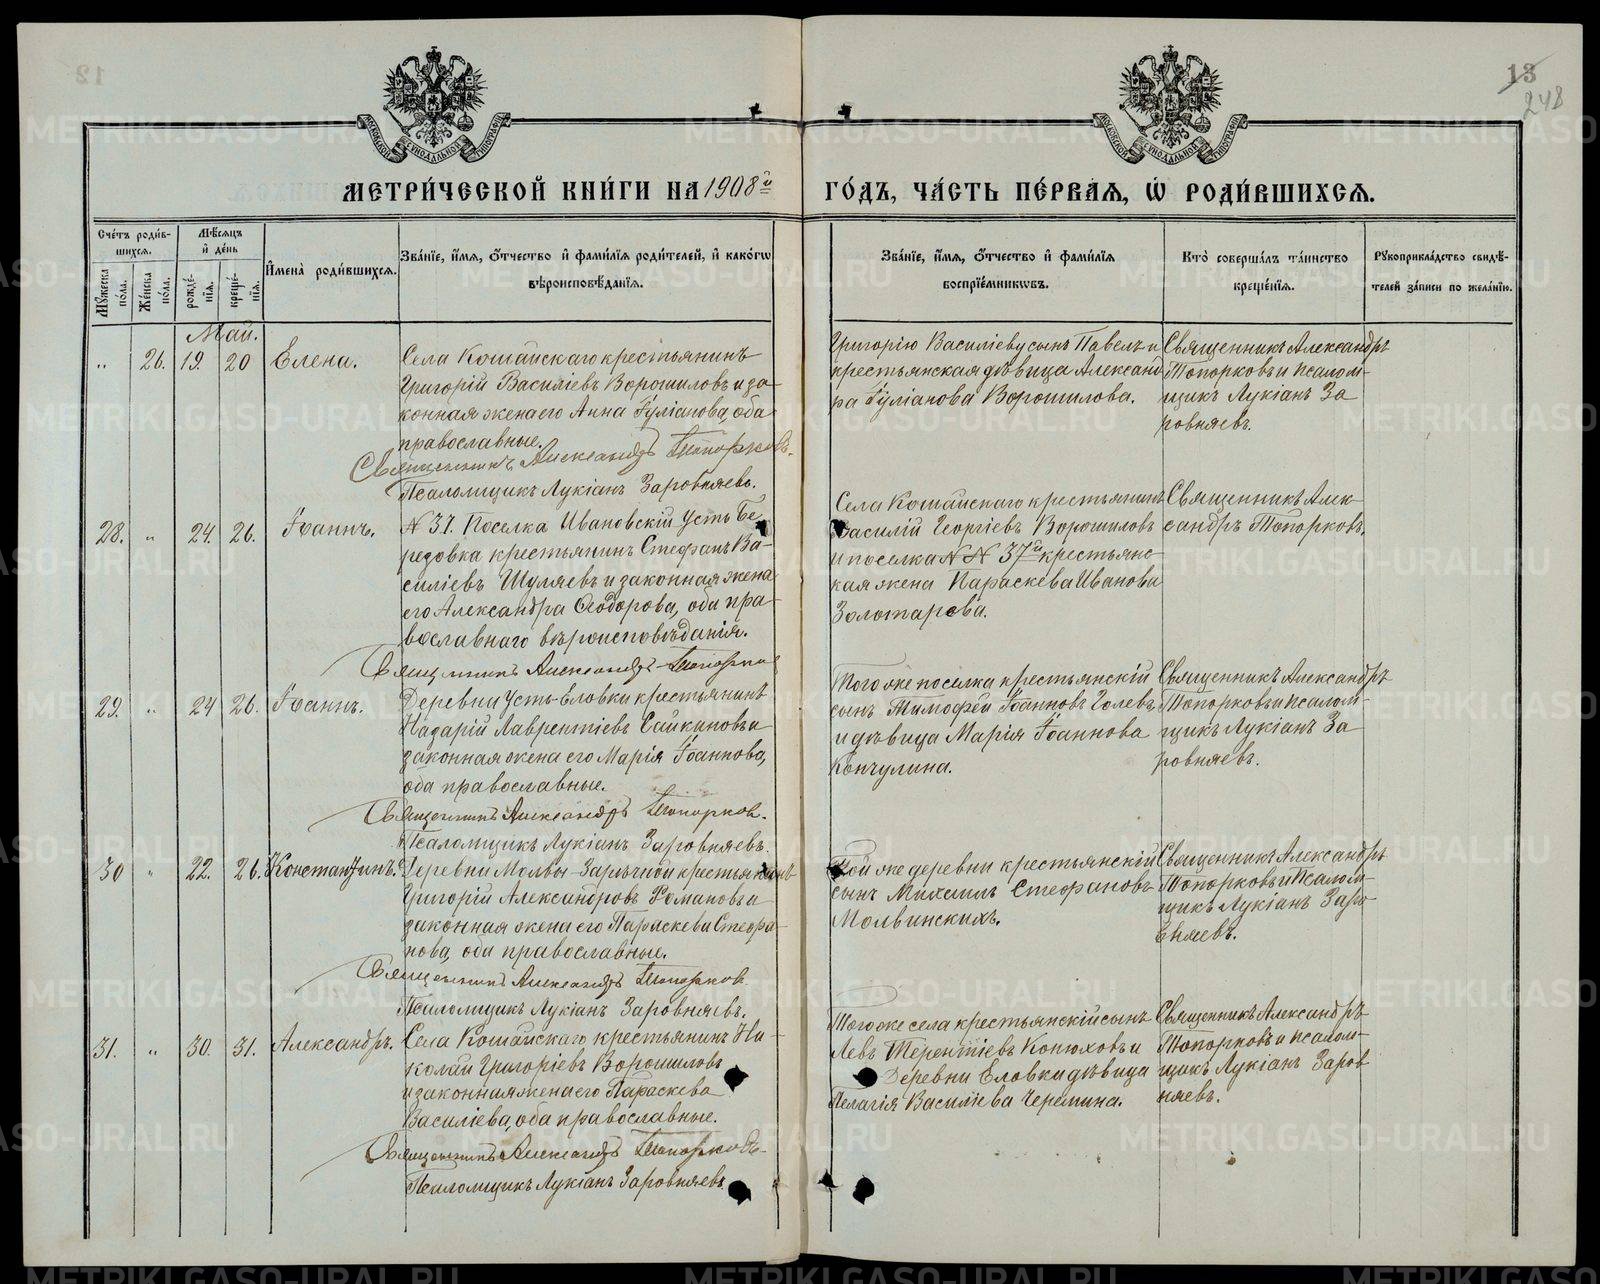 12
13
248
МОСКОВСКОЙ СѴНОДАЛЬНОЙ ТИПОГРАФІИ
МОСКОВСКОЙ СѴНОДАЛЬНОЙ ТИПОГРАФІИ
МЕТРИ́ЧЕСКОЙ КНИ́ГИ НА 1908й ГО́ДЪ, ЧА́СТЬ ПЕ́РВАЯ, Ѡ РОДИ́ВШИХСЯ.
Сче́тъ роди́в-
шихся.
Мѣ́сяцъ
и҆ де́нь
Мꙋ́жеска по́ла.
Же́нска по́ла.
рожде́-
нїя.
креще́-
нїя.
И҆мена̀ роди́вшихся.
Зва́нїе, и҆́мя, ѻ҆́тчество и҆ фами́лїя роди́телей, и҆ како́гѡ
вѣроисповѣ́данїя.
Зва́нїе, и҆́мя, ѻ҆́тчество и҆ фами́лїя
воспрїе́мникѡвъ.
Кто̀ соверша́лъ та́инство
креще́нїя.
Рꙋкоприкла́дство свидѣ́-
телей за́писи по жела́нїю.
Май.
" 26. 19. 20 Елена.
Села Кошайскаго крестьянинъ
Григорій Василіевъ Ворошиловъ и за-
конная жена его Анна Іуліанова, оба
православные.
Священникъ Александръ Топорковъ.
Псаломщикъ Лукіанъ Заровняевъ.
Григорію Василіеву сынъ Павелъ и
крестьянская дѣвица Александ
ра Іуліанова Ворошилова.
Священникъ Александръ
Топорковъ и псалом-
щикъ Лукіанъ За
ровняевъ.
28. " 24. 26. Іоаннъ.
N 37. Поселка Ивановскій Усть Бе
резовка крестьянинъ Стефанъ Ва-
силіевъ Шуляевъ и законная жена
его Александра Ѳеодорова, оба пра-
вославнаго вѣроисповѣданія.
Священникъ Александръ Топорков
Села Кошайскаго крестьянинъ
Василій Георгіевъ Ворошиловъ
и поселка N N 37го крестьянс-
кая жена Параскева Иванова
Золотарева.
Священникъ Алек
сандръ Топорковъ.
29. " 24 26. Іоаннъ.
Деревни Усть-Еловки крестьянинъ
Назарій Лаврентіевъ Сайкановъ и
законная жена его Марія Іоаннова,
оба православные.
Священникъ Александръ Топорков.
Псаломщикъ Лукіанъ Заровняевъ.
Того же поселка крестьянскій
сынъ Тимофей Іоанновъ Голевъ
и дѣвица Марія Іоаннова
Кончулина.
Священникъ Александръ
Топорковъ и псалом-
щикъ Лукіанъ За
ровняевъ.
30 " 22. 26. Константинъ.
Деревни Молвы-Зарѣчной крестьянинъ
Григорій Александровъ Романовъ и
законная жена его Параскева Стефа-
нова, оба православные.
Священникъ Александръ Топорков
Псаломщикъ Лукіанъ Заровняевъ.
Той же деревни крестьянскій
сынъ Михаилъ Стефановъ
Молвинскихъ.
Священникъ Александръ
Топорковъ и псалом-
щикъ Лукіанъ Заро-
вняевъ.
31. " 30. 31. Александръ.
Села Кошайскаго крестьянинъ Ни-
колай Григоріевъ Ворошиловъ
и законная жена его Параскева
Василіева, оба православные.
Священникъ Александръ Топорковъ.
Псаломщикъ Лукіанъ Заровняевъ
Того же села крестьянскій сынъ
Левъ Терентіевъ Конюховъ и
Деревни Еловки дѣвица
Пелагія Василіева Черемина.
Священникъ Александръ
Топорковъ и псалом-
щикъ Лукіанъ Заров
няевъ.
METRIKI.GASO-URAL.RU